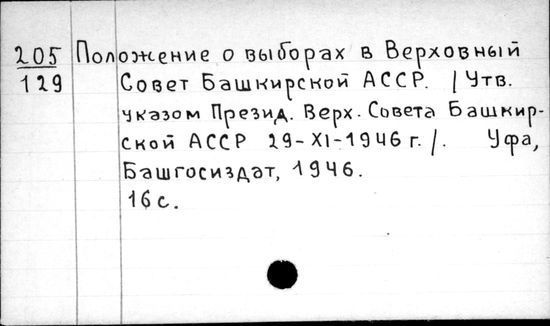 205 Положение о выборах в Верховный
129 Совет Башкирской АССР. /Утв.
указом Презид. Верх. Совета Башкир-
ской АССР 29-XI-1946 г./. Уфа,
Башгосиздат, 1946.
16 с.